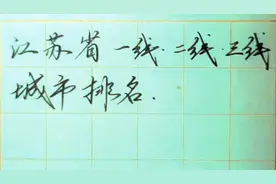 江苏省一线.二线.三线
城市排名.